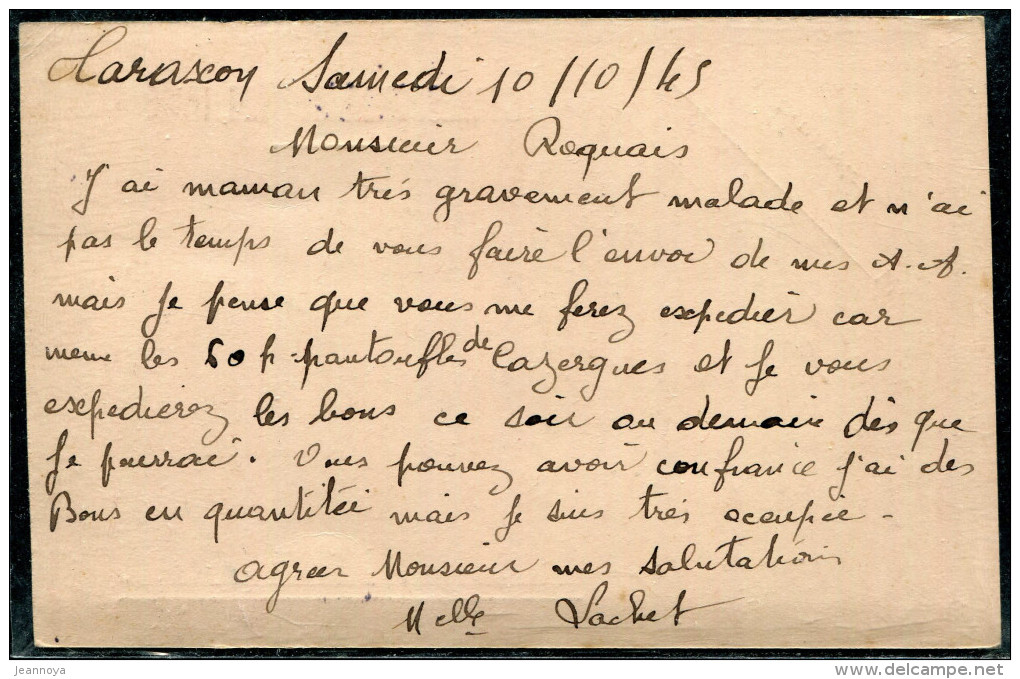 Tarascon Samedi 10/10/45
Monsieur Roquais
J'ai maman très gravement malade et n'ai
pas le temps de vous faire l'envoi de mes A.A.
mais je pense que vous me ferez expedier car
meme les 60 p. pantoufles de Cazergues et je vous
expedierez les bons ce soir ou demain dès que
je pourrai. Vous pouvez avoir confiance j'ai des
Bons en quantitéé mais je suis très occupée -
agréer Monsieur mes salutations
Melle Sachet
jeannoya
www.delcampe.net